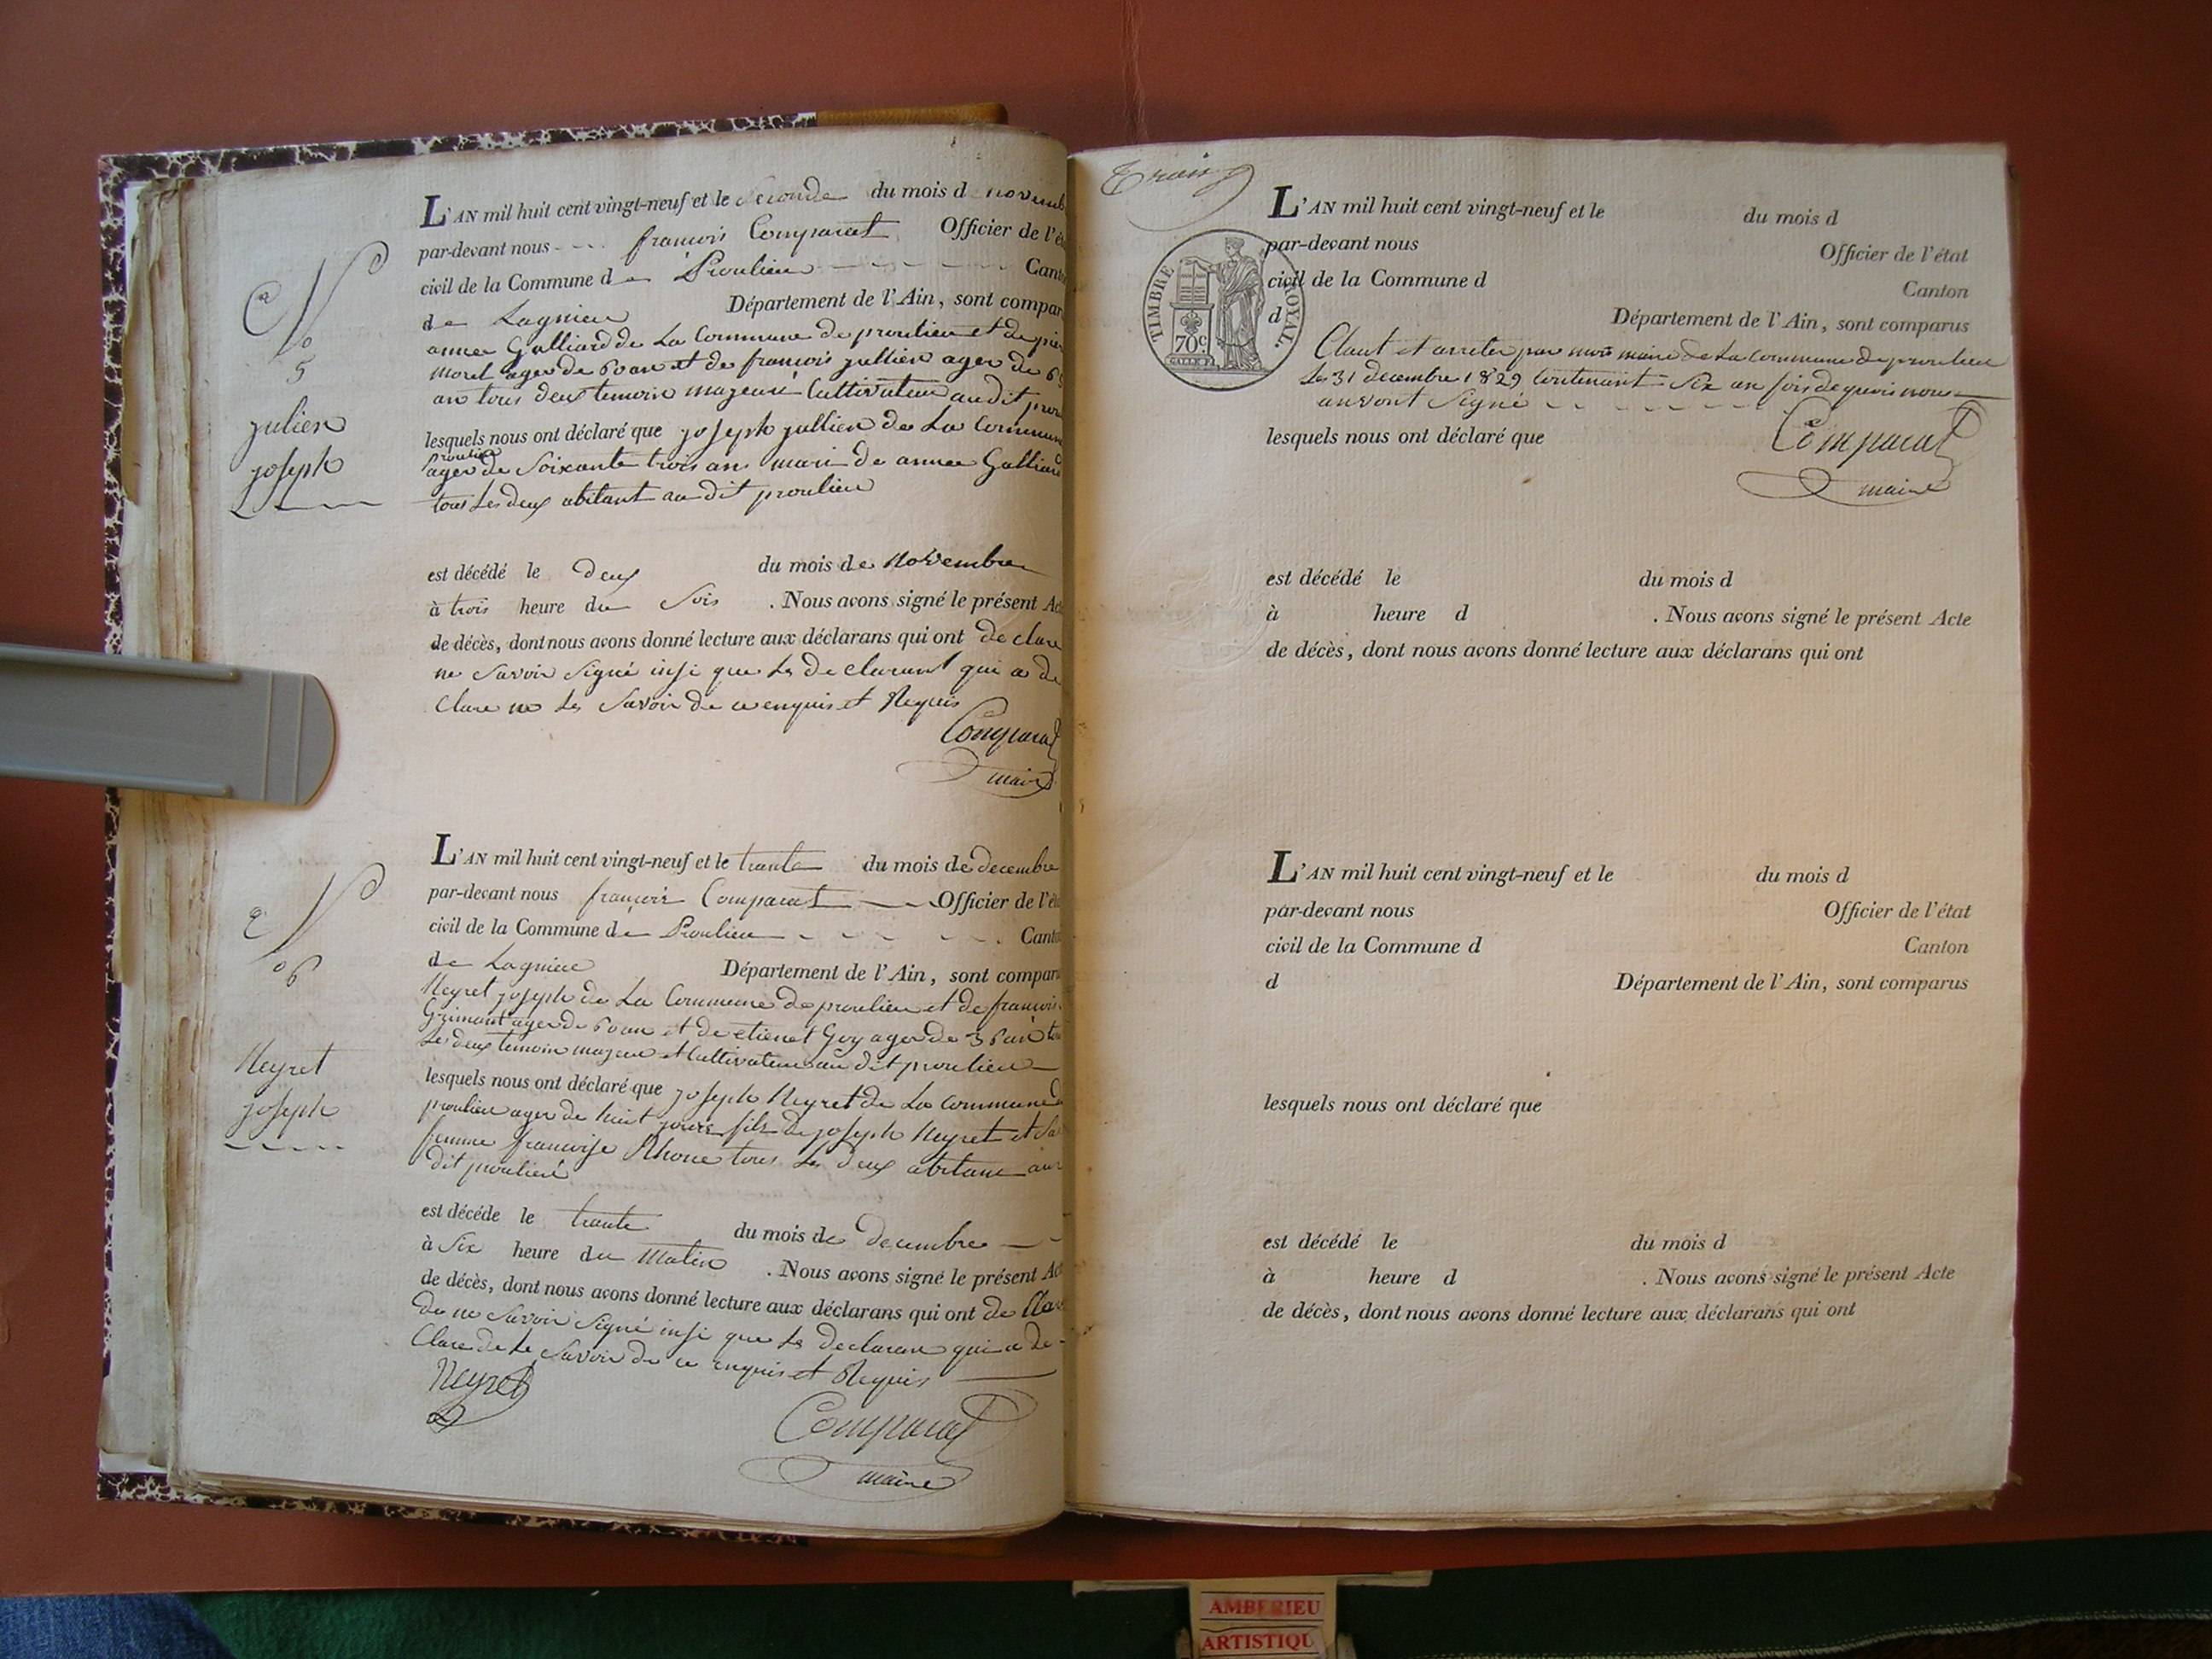 N
o
5
julien
joseph
L'AN mil huit cent vingt-neuf et le seconde du mois d novemb
par-devant nous francois Comparat Officier de l'ét
civil de la Commune de Proulieu Canto
de Lagnieu Département de l'Ain, sont compar
annee Galliard de La Commune de proulieu et de pier
morel ager de 60 an et de francois jullien ager de 6
an tous deux temoin majeur Cultivateur audit prou
lesquels nous ont déclaré que joseph jullien de La Commune
proulieu
ager de Soixante trois an mari de annee Galliard
tous Les deux abitant au dit proulieu
est décédé le deux du mois de Novembre
à trois heure du Soir . Nous avons signé le présent Act
de décès, dont nous avons donné lecture aux déclarans qui ont de clare
ne Savoir Signé insi que Le declarant qui a de
Clare ne Le Savoir de ce enquis et Requis
Comparat
maire
N
o 6
Neyret
joseph
L'AN mil huit cent vingt-neuf et le trante du mois de decembre
par-devant nous francois Comparat Officier de l'ét
civil de la Commune de Proulieu Canto
de Lagnieu Département de l'Ain, sont compar
Neyret joseph de La Commune de proulieu et de francois
Grimant ager de 60 an et de etienet Goy ager de 36 an tou
Les deux temoin majeur et Cultivateur au dit proulieu
lesquels nous ont déclaré que joseph Neyret de La Commune d
proulieu ager de huit jours fils de joseph Neyret et Sa
femme francoise Rhone tous Les deux abitant au
dit proulieu
est décédé le trante du mois de decembre
à Six heure du Matin . Nous avons signé le présent Act
de décès, dont nous avons donné lecture aux déclarans qui ont de Clare
de ne Savoir Signé insi que Le declarant qui a de-
Clare de Le Savoir de ce enquis et Requis
Neyret
Comparat
maire
Trois
TIMBRE ROYAL.
70c
L'AN mil huit cent vingt-neuf et le du mois d
par-devant nous Officier de l'état
civil de la Commune d Canton
d Département de l'Ain, sont comparus
Claut et arreter par nous maire de La Commune de proulieu
Le 31 decembre 1829 Contenant Six an foi de quoi nous
auvont Signé
lesquels nous ont déclaré que
Comparat
maire
est décédé le du mois d
à heure d . Nous avons signé le présent Acte
de décès, dont nous avons donné lecture aux déclarans qui ont
L'AN mil huit cent vingt-neuf et le du mois d
par-devant nous Officier de l'état
civil de la Commune d Canton
d Département de l'Ain, sont comparus
lesquels nous ont déclaré que
est décédé le du mois d
à heure d . Nous avons signé le présent Acte
de décès, dont nous avons donné lecture aux déclarans qui ont
AMBERIEU
ARTISTIQU